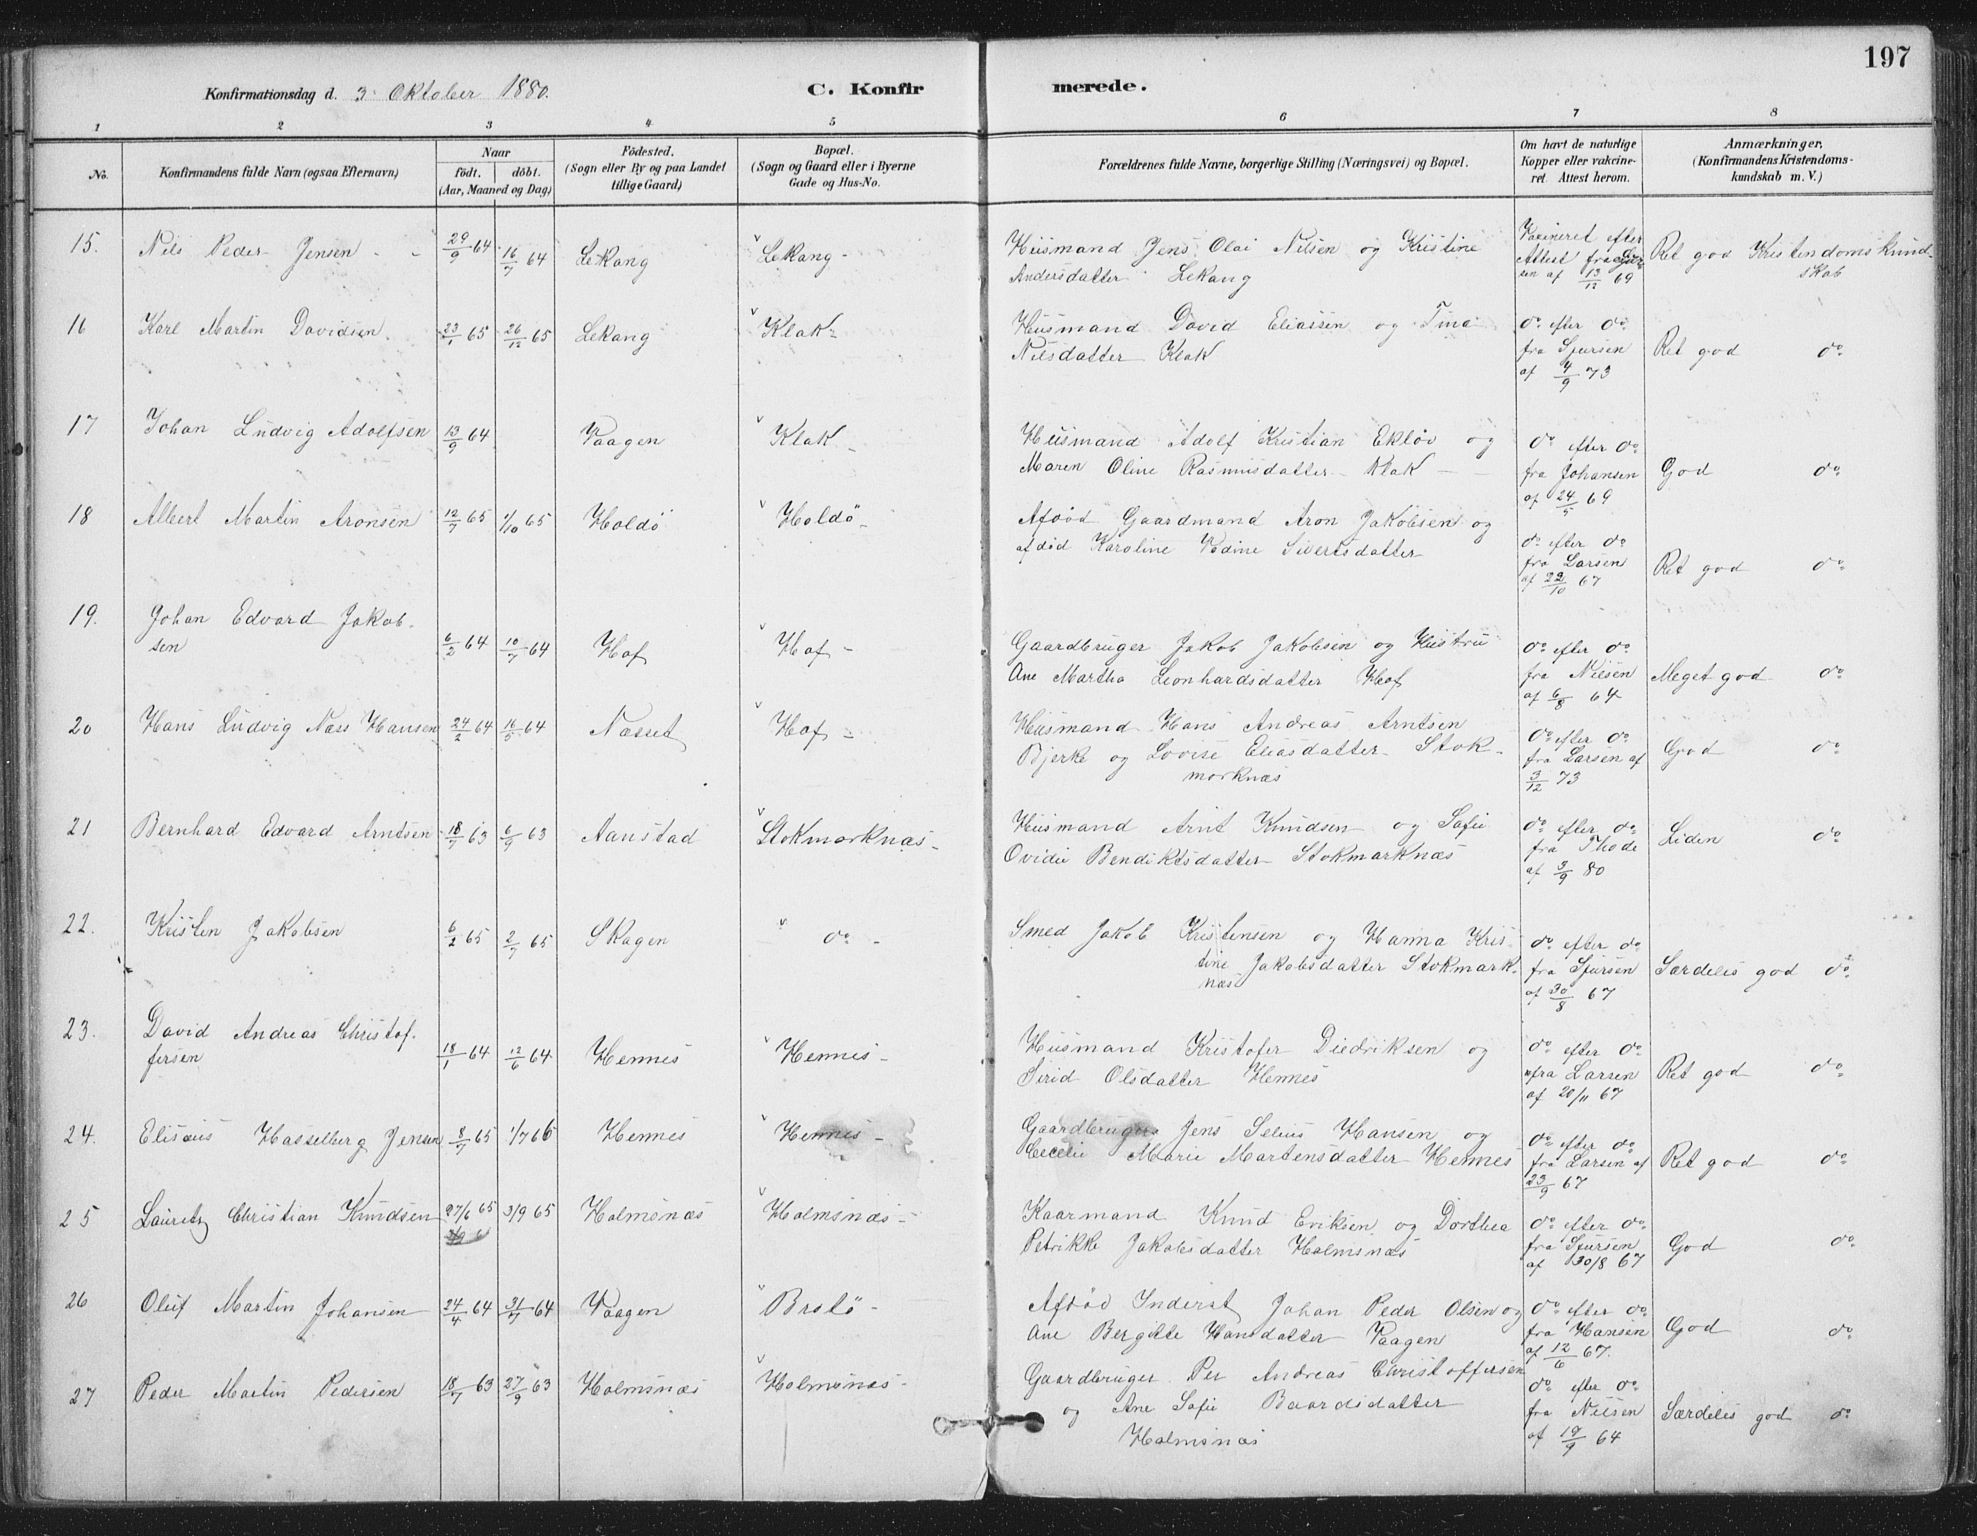 197
Konfirmationsdag d. 3. Oktober 1880. C. Konfirmerede.
1 2 3 4 5 6 7 8
No. Konfirmandens fulde Navn (ogsaa Efternavn) Naar født. døbt. (Aar, Maaned og Dag) Fødested. (Sogn eller By og paa Landet tillige Gaard) Bopæl. (Sogn og Gaard eller i Byerne Gade og Hus-No. Forældrenes fulde Navne, borgerlige Stilling (Næringsvei) og Bopæl. Om havt de naturlige Kopper eller vakcineret. Attest herom. Anmærkninger. (Konfirmandens Kristendomskundskab m. V.)
15. Nils Peder Jensen 29/9 64 16/7 64 Lekang Lekang Husmand Jens Olai Nilsen og Kristine
Andersdatter Lekang Vaxineret efter Attest fra af 13/12 69 Ret god Kristendomskundskab
16 Karl Martin Davidsen 23/1 65 26/12 65 Lekang Klak Husmand David Eliassen og Tina
Nilsdatter Klak do efter do fra Sjursen af 4/9 73 Ret god do
17 Johan Ludvig Adolfsen 13/9 64 Vaagen Klak Husmand Adolf Kristian Ekløv og
Maren Oline Rasmusdatter Klak do efter do fra Johansen af 24/5 69 God do
18 Albert Martin Aronsen 12/7 65 1/10 65 Holdö Holdö Afdød Gaardmand Aron Jakobsen og
afdød Karoline Sivertsdatter do efter do fra Larsen af 22/10 67 Ret god do
19. Johan Edvard Jakobsen 6/2 64 10/7 64 Hof Hof Gaardbruger Jakob Jakobsen og Hustru
Ane Martha Leonhardsdatter Hof do efter do fra Nilsen af 6/8 64 Meget god do
20 Hans Ludvig Næss Hansen 24/2 64 16/5 64 Næsset Hof Husmand Hans Andreas Arntsen
Bjerke og Lovise Eliasdatter Stokmorknæs do efter do fra Larsen af 3/12 73 God do
21 Bernhard Edvard Arntsen 18/7 63 6/9 63 Aanstad Stokmorknæs Husmand Arnt Knudsen og Sofie
Ovidie Bendiktsdatter Stokmarknæs do efter do fra Thode af 3/9 80 Liden do
22. Kristen Jakobsen 6/2 65 2/7 65 Skagen do Smed Jakob Kristensen og Hanna Kristine
Jakobsdatter Stokmarknæs do efter do fra Sjursen af 30/8 67 Særdeles god do
23. David Andreas Christoffersen 18/1 64 12/6 64 Hennes Hennes Husmand Kristofer Diedriksen og
Sirid Olsdatter Hennes do efter do fra Larsen af 20/11 67 Ret god do
24. Elisæus Hasselberg Jensen 8/7 65 1/7 66 Hennes Hennes Gaardbruger Jens Selius Hansen og
Cecelie Marie Martensdatter Hennes do efter do fra Larsen af 23/9 67 Ret god do
25 Lauritz Christian Knudsen 27/6 65 3/9 65 Holmsnæs Holmsnæs Kaarmand Knud Eriksen og Dorthea
Petrikke Jakobsdatter Holmsnæs do efter do fra Sjursen af 30/8 67 God do
26 Oluf Martin Johansen 24/4 64 31/7 64 Vaagen Brotö Afdød Inderst Johan Peder Olsen og
Ane Bergitte Hansdatter Vaagen do efter do fra Hansen af 12/6 67. God do
27 Peder Martin Pedersen 18/7 63 27/9 63 Holmsnæs Holmsnæs Gaardbruger Per Andreas Christoffersen
og Ane Sofie Baardsdatter
Holmsnæs do efter do fra Nilsen af 19/9 64 Særdeles god do